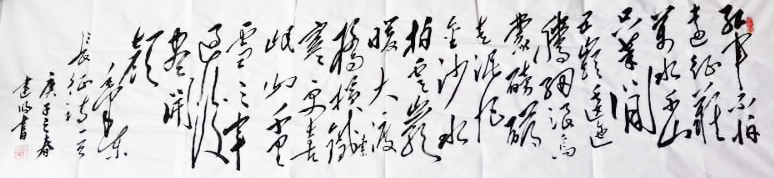 红军不怕
远征難
萬水千山
只等闲
五嶺逶迤
腾细浪乌
蒙磅礴
走泥丸
金沙水
拍雲崖
暖大渡
橋横鐵索
寒更喜
岷山千里
雪三军
过後
尽開
颜
毛泽东
长征诗一首
庚子之春
书